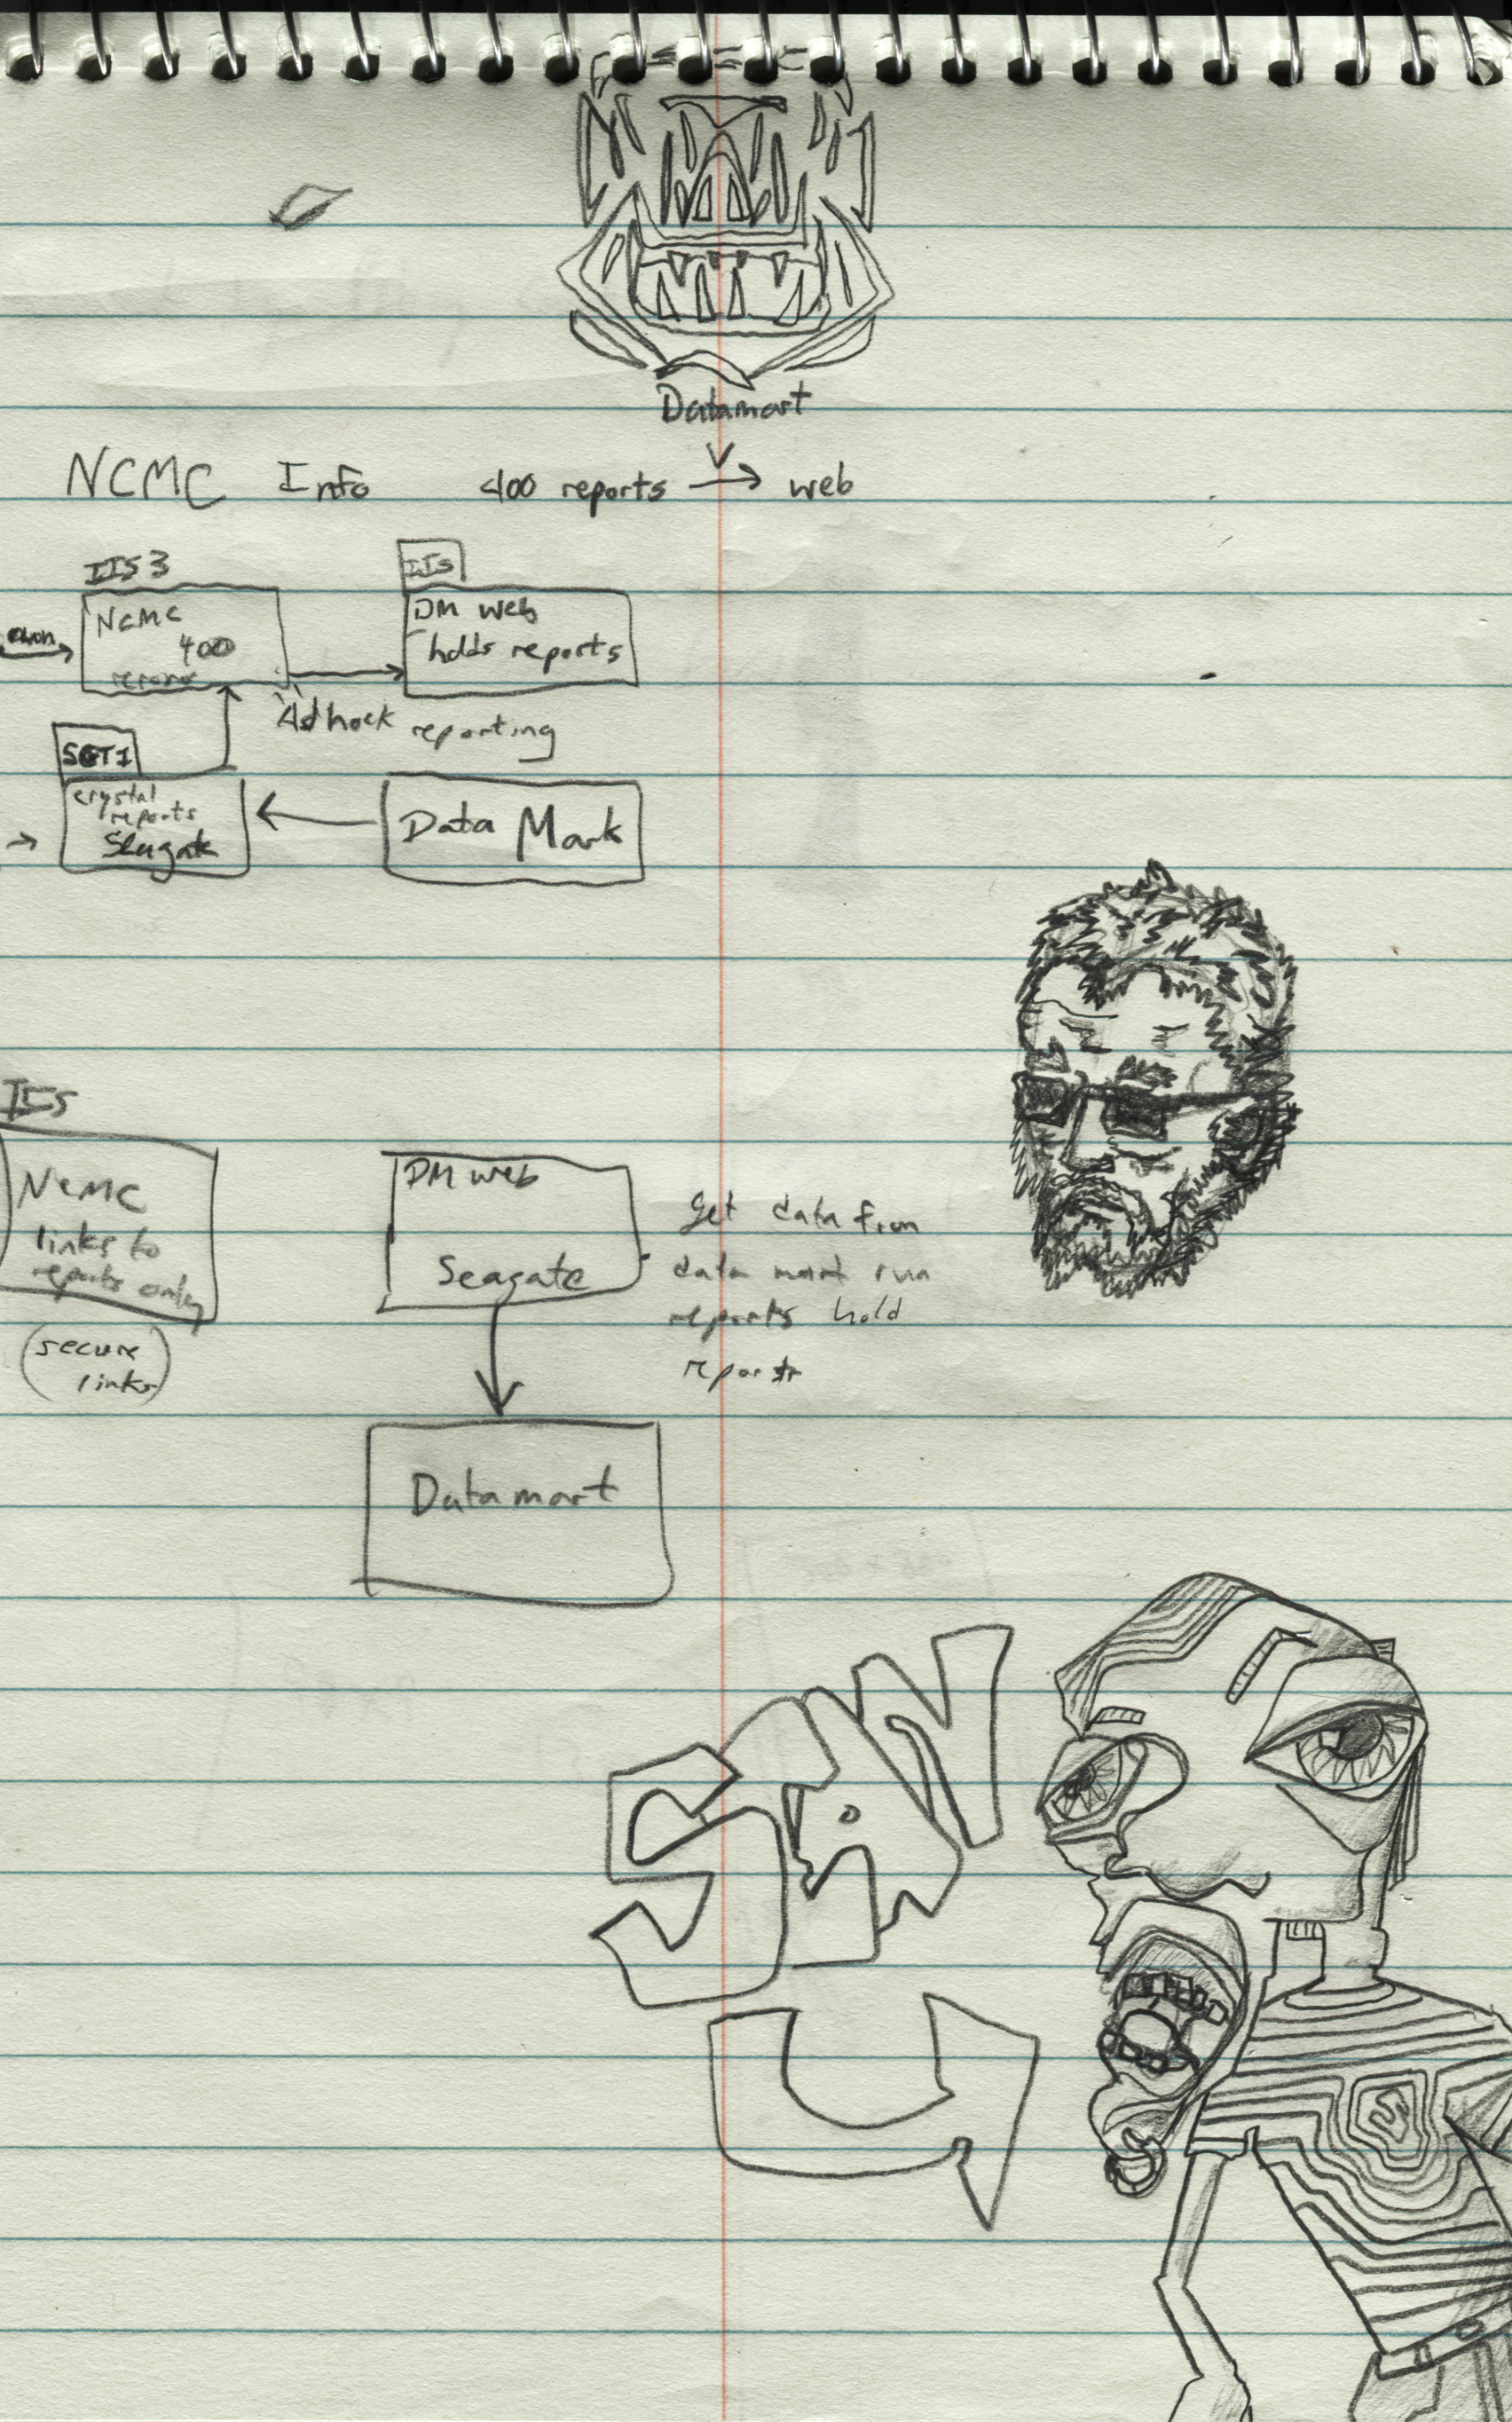 Datamart
NCMC Info 400 reports → web
IIS 3
IIS
NCMC
400
DM web
holds reports
Adhock reporting
SGT1
crystal
reports
Seagate
Data Mark
IIS
NCMC
links to
reports only
(secure
links)
DM web
Seagate
get data from
data mart run
reports hold
reports
Datamart